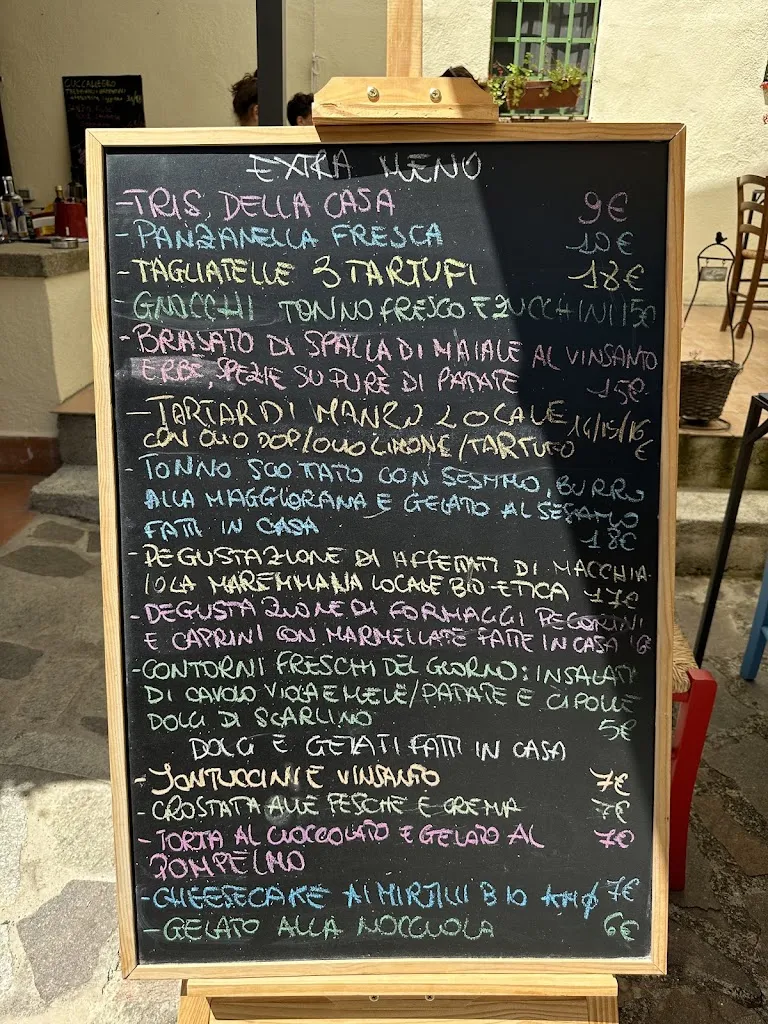 EXTRA MENO
-TRIS DELLA CASA 9€
-PANZANELLA FRESCA 10€
-TAGLIATELLE 3 TARTUFI 18€
-GNOCCHI TONNO FRESCO E ZUCCHINI 15€
-BRASATO DI SPALLA DI MAIALE AL VINSANTO
ERBE, SPEZIE SU PURÈ DI PATATE 15€
-TARTAR DI MANZO LOCALE 14/15/16
CON OLIO DOP/OLIO LIMONE/TARTUFO €
-TONNO SCOTTATO CON SESAMO, BURRO
ALLA MAGGIORANA E GELATO AL SESAMO
FATTI IN CASA 18€
-DEGUSTAZIONE DI AFFETTATI DI MACCHIA
IOLA MAREMMANA LOCALE BIO-ETICA 17€
-DEGUSTAZIONE DI FORMAGGI PECORINI
E CAPRINI CON MARMELLATE FATTE IN CASA
-CONTORNI FRESCHI DEL GIORNO: INSALATA
DI CAVOLO VIOLA E MELE/PATATE E CIPOLLE
DOLCI DI SCARLINO 5€
DOLCI E GELATI FATTI IN CASA
-CANTUCCINI E VINSANTO 7€
-CROSTATA ALLE PESCHE E CREMA 7€
-TORTA AL CIOCCOLATO E GELATO AL 7€
POMPELMO
-CHEESECAKE AI MIRTILLI BIO KM0 7€
-GELATO ALLA NOCCIOLA 6€